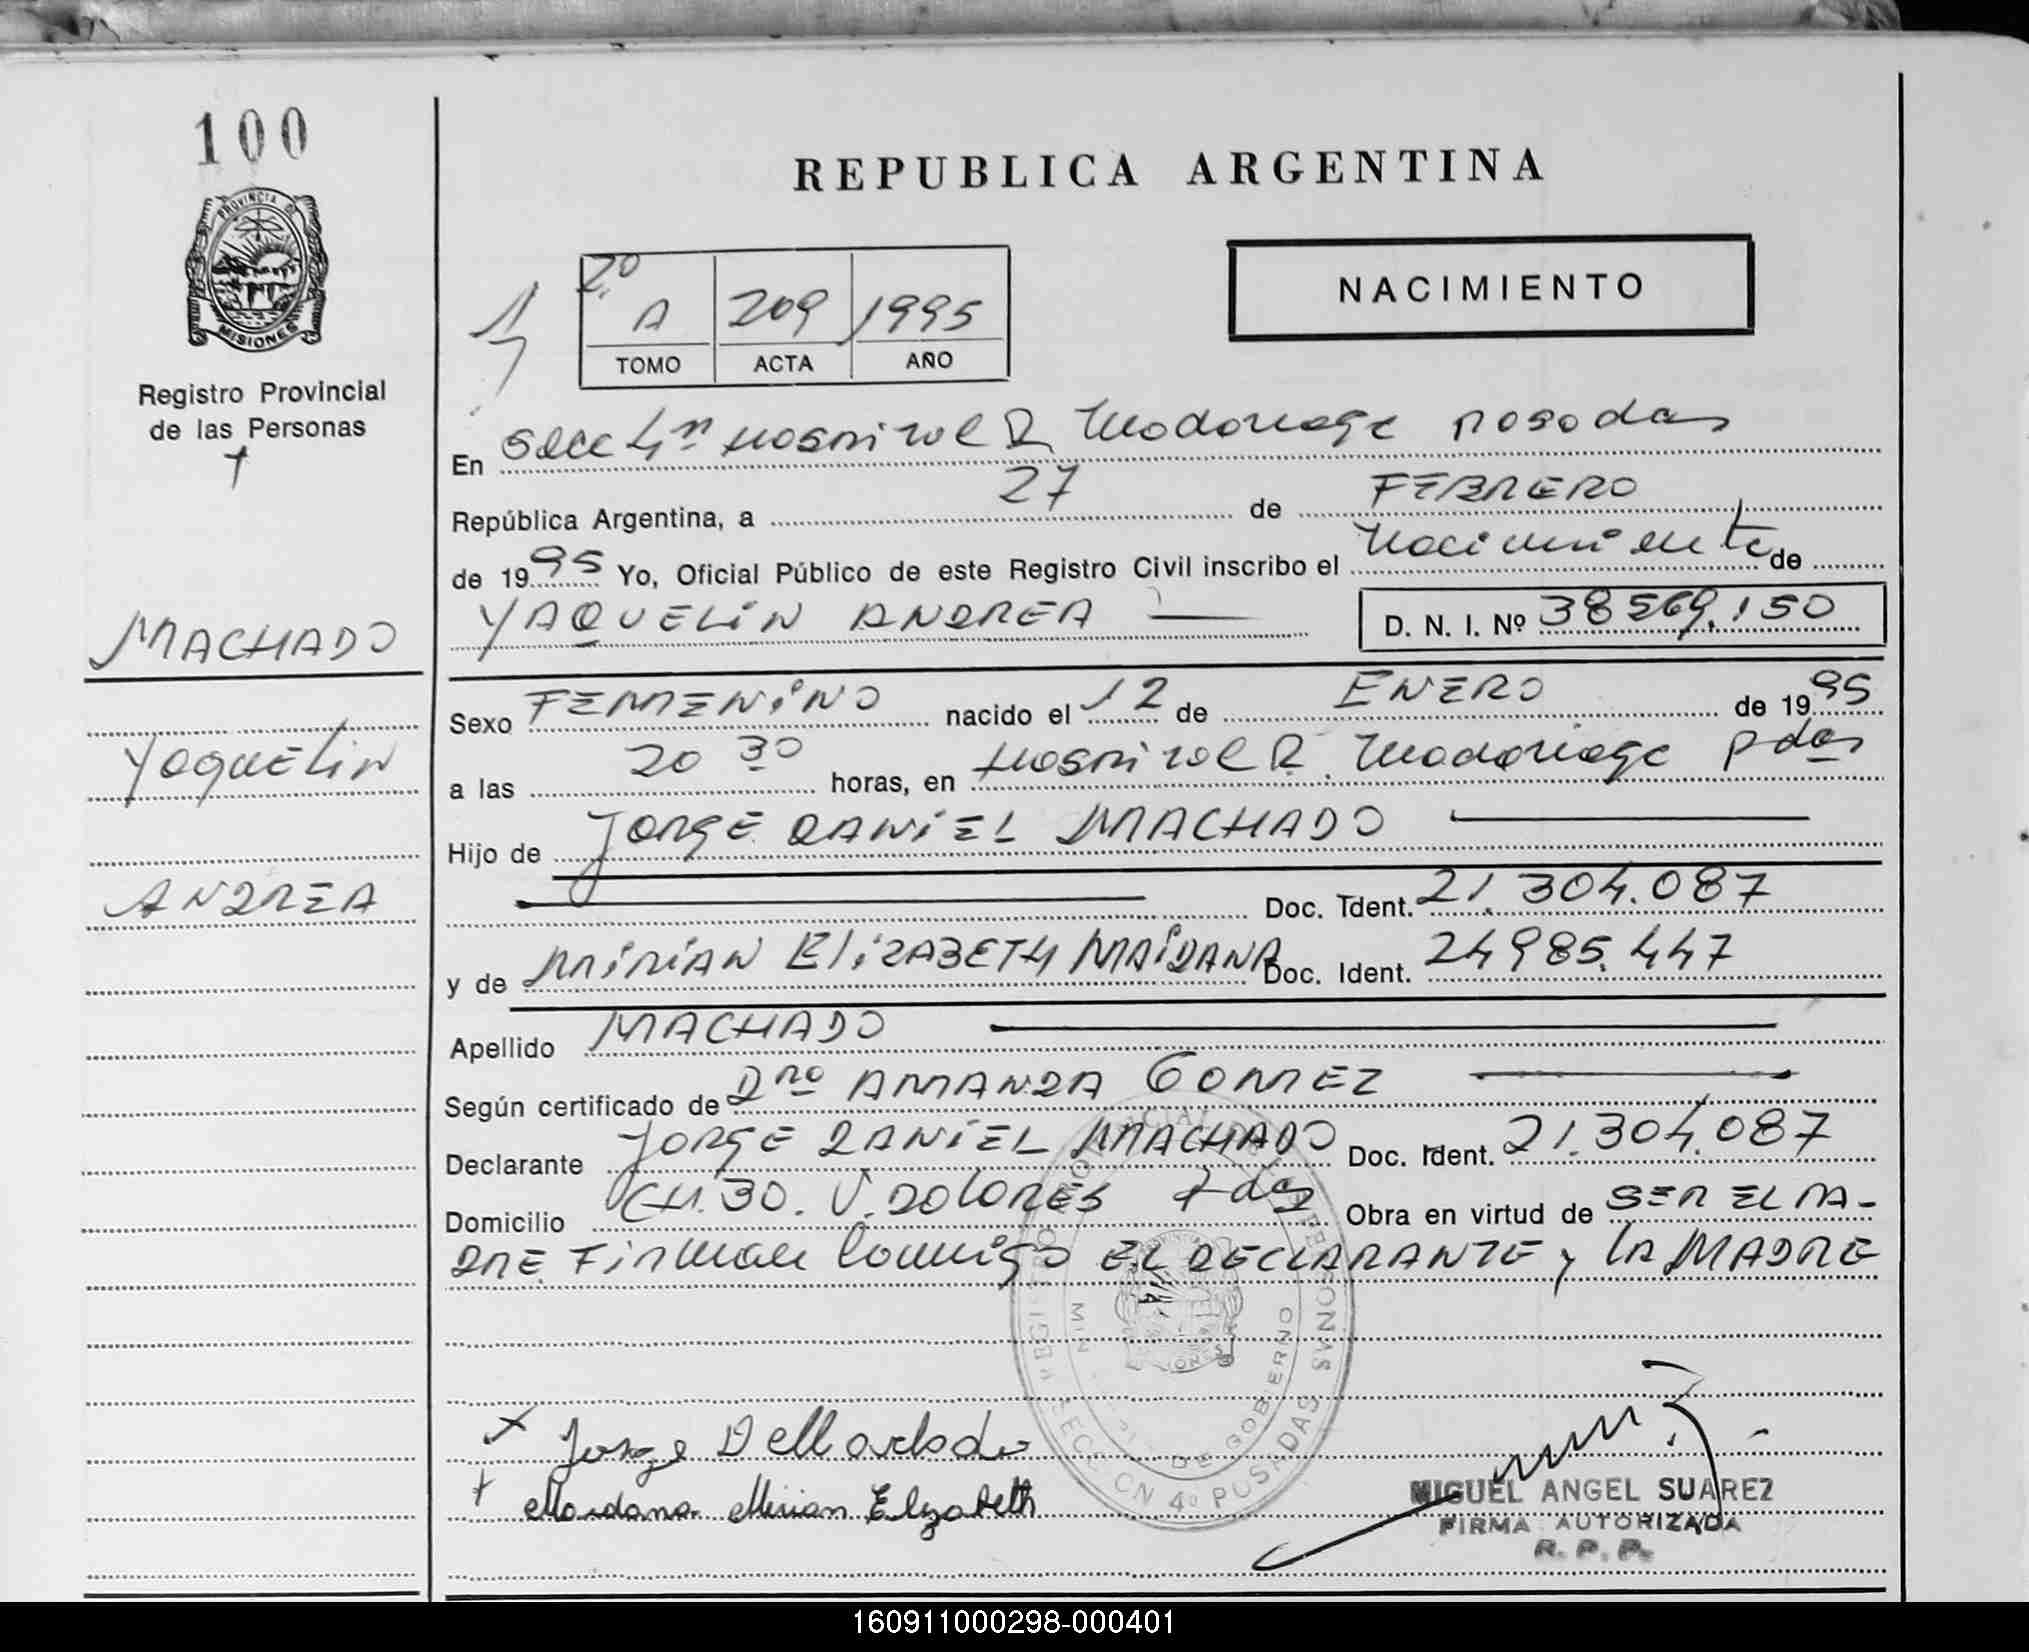 100
PROVINCIA D
MISIONES
Registro Provincial
de las Personas
REPUBLICA ARGENTINA
NACIMIENTO
2º
A 209 1995
TOMO ACTA AÑO
En Secc 4ª Hospital R Madariaga Posadas
República Argentina, a 27 de FEBRERO
de 1995 Yo, Oficial Público de este Registro Civil inscribo el Nacimiento de
YAQUELIN ANDREA D. N. I. Nº 38569.150
MACHADO
Yaquelin
ANDREA
Sexo FEMENINO nacido el 12 de ENERO de 1995
a las 20 30 horas, en Hospital R. Madariaga Pdas
Hijo de JORGE DANIEL MACHADO
Doc. Ident. 21.304.087
y de MIRIAN ELIZABETH MAIDANA Doc. Ident. 24985.447
Apellido MACHADO
Según certificado de Dra AMANDA GOMEZ
Declarante JORGE DANIEL MACHADO Doc. Ident. 21.304.087
Domicilio CH.30. V.DOLORES Pdas Obra en virtud de SER EL PA-
DRE. Firman Conmigo EL DECLARANTE y LA MADRE
REGISTRO PROVINCIAL DE LAS PERSONAS
DE GOBIERNO
SECCION 4º POSADAS
Jorge D Machado
Maidana Mirian Elizabeth
MIGUEL ANGEL SUAREZ
FIRMA AUTORIZADA
R. P. P.
160911000298-000401